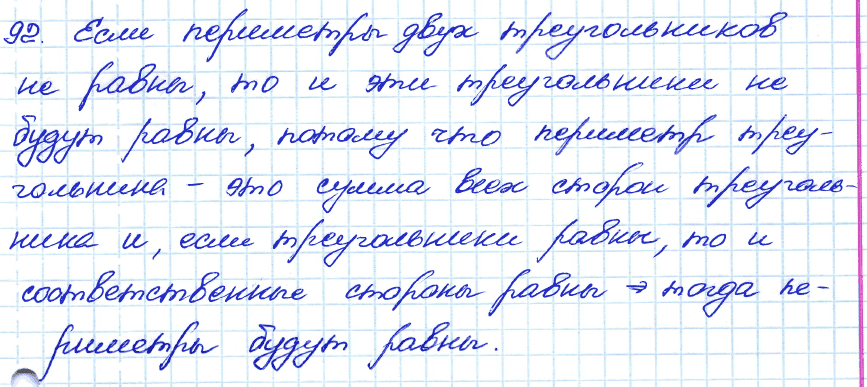 92. Если периметры двух треугольников
не равны, то и эти треугольники не
будут равны, потому что периметр треу-
гольника – это сумма всех сторон треуголь-
ника и, если треугольники равны, то и
соответственные стороны равны → тогда пе-
риметры будут равны.